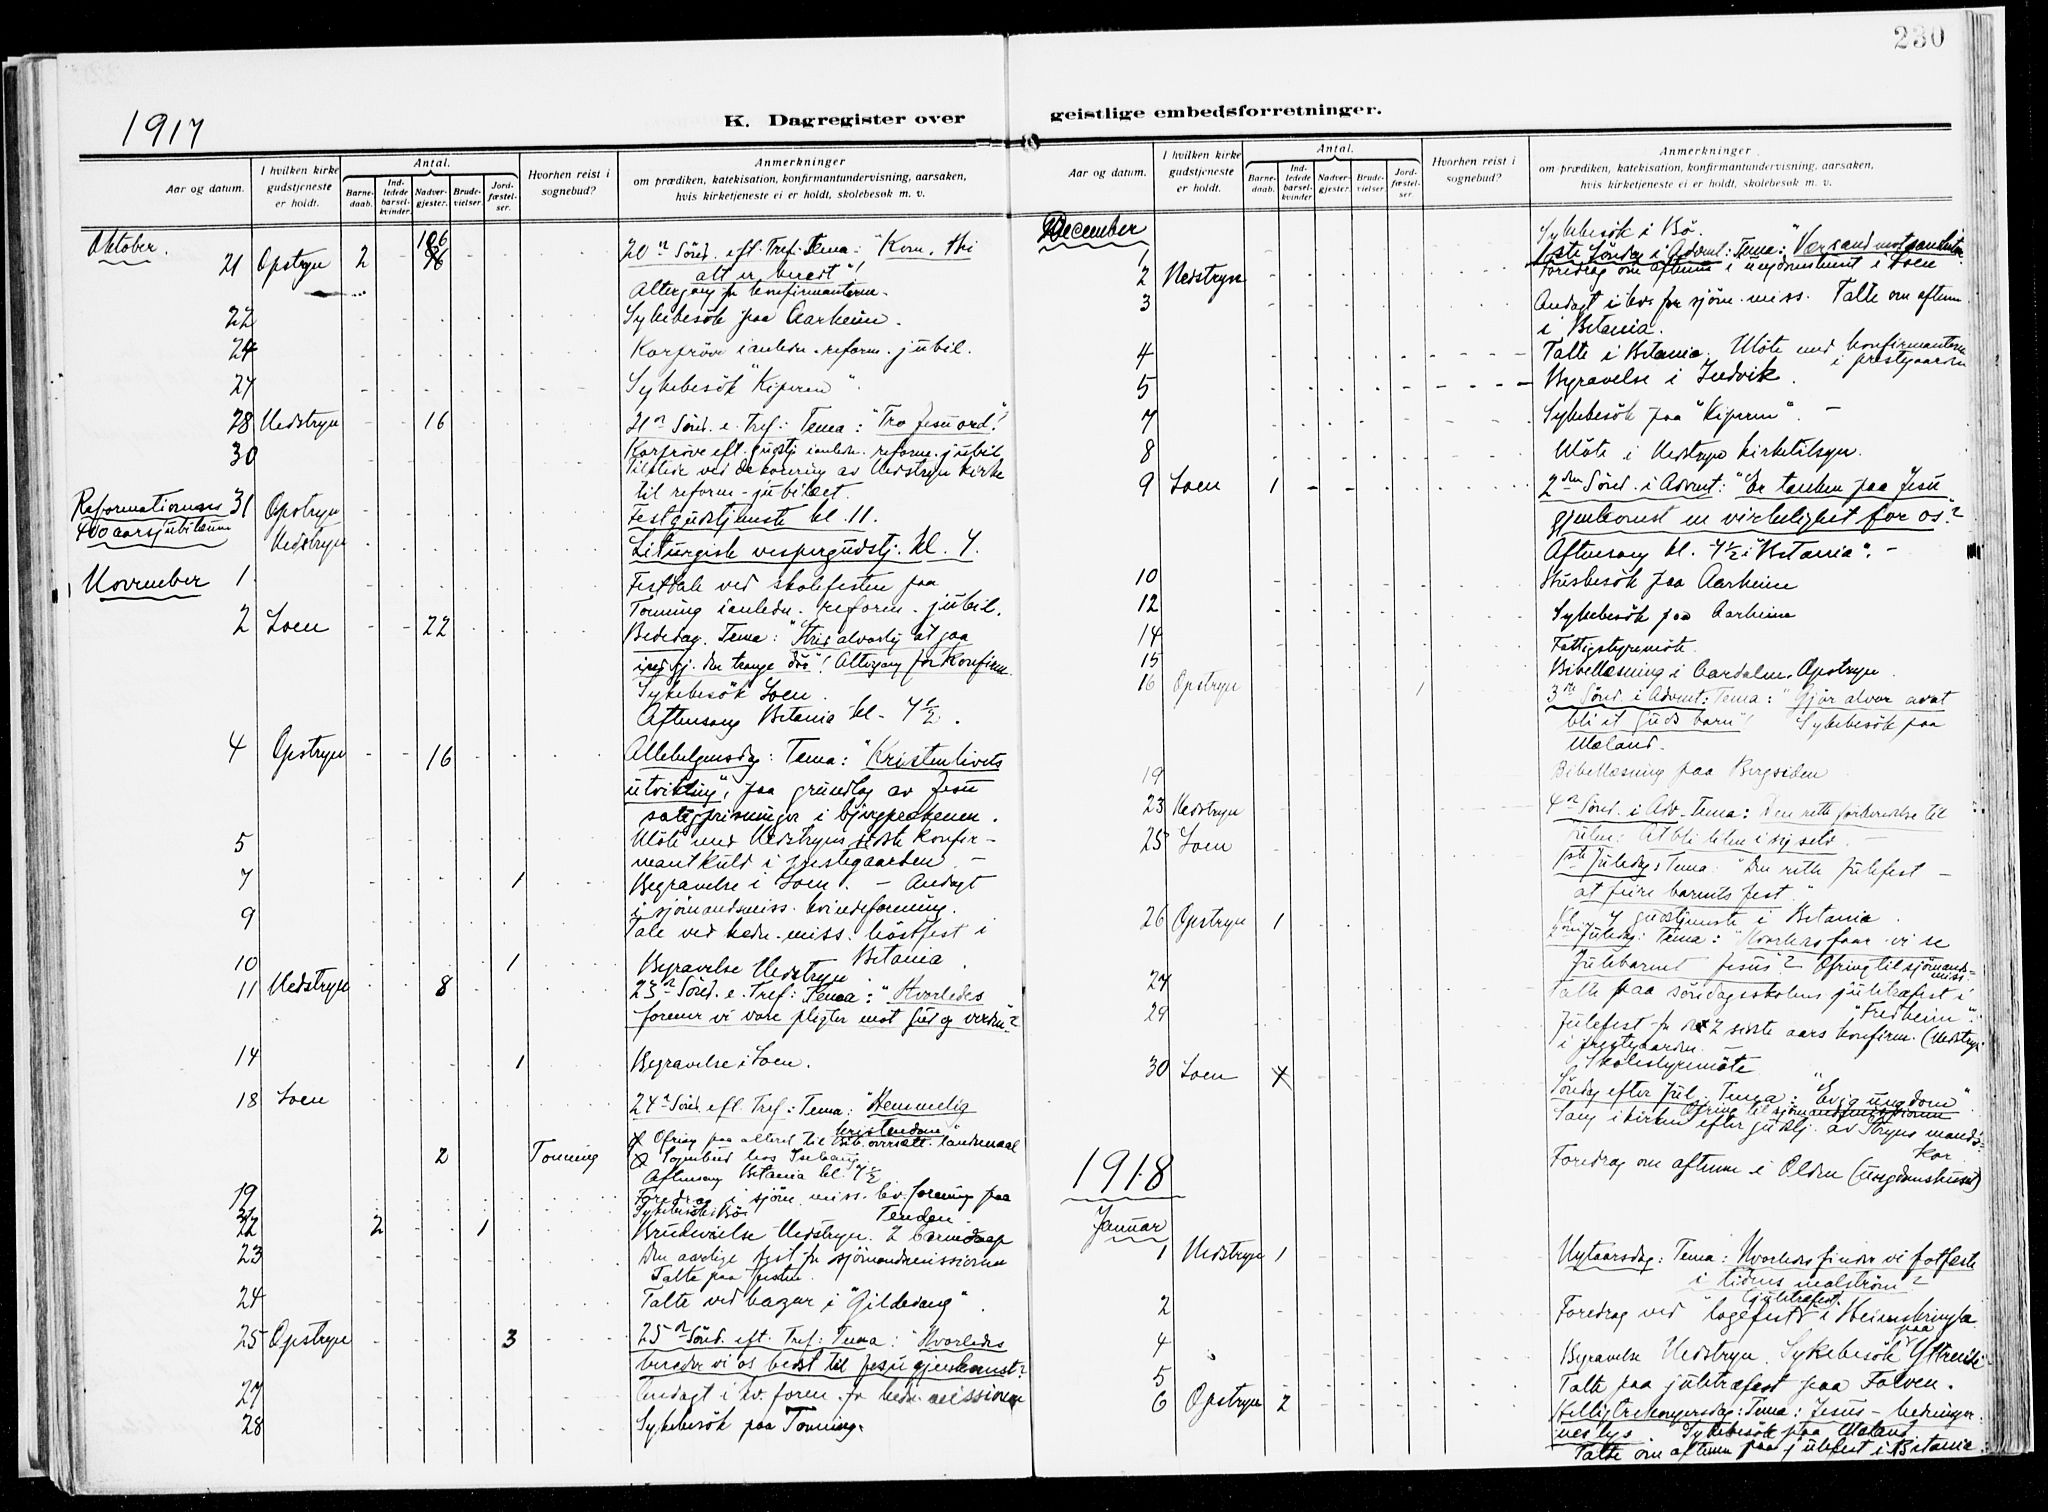 230
1917
K. Dagregister over geistlige embedsforretninger.
Aar og datum.
I hvilken kirke gudstjeneste er holdt.
Antal.
Barne-daab.
Ind-ledede barsel-kvinder.
Nadver-gjester.
Brude-vielser.
Jord-fæstel-ser.
Hvorhen reist i sognebud?
Anmerkninger
om prædiken, katekisation, konfirmantundervisning, aarsaken,
hvis kirketjeneste ei er holdt, skolebesøk m. v.
Oktober.
106
21 Opstryn 2 20n Sönd. eft. Tref. Tema: "Kom, thi
alt er beredt"!
Altergang fr konfirmanterne.
22 Sykebesök paa Aarheim.
24 Korpröve i anledn. reform. jubil.
27 Sykebesök "Kiperen".
28 Nedstryn 16 21n Sönd. e. Tref: Tema: "Tro Jesu ord"!
30 Korpröve eft. gudstj. i anledn. reform. jubil.
Tilstede ved dekorering av Nedstryn kirke
til reform-jubilæet.
Reformationens 31 Opstryn Festgudstjeneste kl. 11.
400 aarsjubilæum Nedstryn Liturgisk vespergudstj. kl. 7.
November 1. Festtale ved skolefesten paa
Tonning i anledn. reform. jubil.
2 Loen 22 Bededag. Tema: "Strid alvorlig at gaa
ind gj. den trange dör"! Altergang for konfirm.
Sykebesök Loen.
Aftensang Betania kl. 7 1/2.
4 Opstryn 16 Allehelgensdag: Tema: "Kristenlivets
utvikling", paa grundlag av Jesu
saligprisninger i bjergprekenen.
5 Möte med Nedstryns sidste konfir-
mantkuld i prestegaarden. -
7 1 Begravelse i Loen. - Andagt
i sjömandsmiss. kvindeforening.
9 Tale ved hedn. miss. höstfest i
Betania.
10 1 Begravelse Nedstryn.
11 Nedstryn 8 23n Sönd. e. Tref: Tema: "Hvorledes
forener vi vore pligter mot Gud og verden"?
14 1 Begravelse i Loen.
18 Loen 24n Sönd. eft. Tref: Tema: "Hemmelig
kristendom"
Ofring paa alteret til Bib. oversætt. landsmaal
2 Tonning Sognebud hos
Aftensang Betania kl. 7 1/2
19 Foredrag i sjöm. miss. kv. forening paa
Tenden.
Sykebesök Bö
22 2 1 Brudevielse Nedstryn. 2 barnedaap
23 Den aarlige fest for sjömandsmissionen
Talte paa festen.
24 Talte ved bazar i "Gildevang".
25 Opstryn 3 25n Sönd. eft. Tref: Tema: "Hvorledes
bereder vi os bedst til Jesu gjenkomst?
27 Andagt i kv. foren. for hedn. missionen
28 Sykebesök paa Tonning.
Aar og datum.
I hvilken kirke gudstjeneste er holdt.
Antal.
Barne-daab.
Ind-ledede barsel-kvinder
Nadver-gjester.
Brude-vielser.
Jord-fæstel-ser.
Hvorhen reist i sognebud?
Anmerkninger
om prædiken, katekisation, konfirmantundervisning, aarsaken,
hvis kirketjeneste ei er holdt, skolebesøk m. v.
December
1 Sykebesök i Bö.
2 Nedstryn 1ste Söndag i Advent: Tema:
Foredrag om aftenen i ungdomshuset i Loen
3 Andagt i kv. for sjöm. miss. Talte om aftenen
i Betania.
4 Talte i Betania. Möte med konfirmanterne
i prestegaarden
5 Begravelse i Indvik.
7 Sykebesök paa "Kiperen". -
8 Möte i Nedstryn kirketilsyn.
9 Loen 1 2den Sönd. i Advent: "Er tanken paa Jesu
gjenkomst en virkelighet for os"?
Aftensang kl. 7 1/2 i "Betania". -
10 Husbesök paa Aarheim
12 Sykebesök paa Aarheim
14 Fattigstyremöte.
15 Bibellæsning i Aardalen, Opstryn.
16 Opstryn 1 3die Sönd. i Advent: Tema: "Gjör alvor av at
bli et Guds barn"! Sykebesök paa
Mæland.
19 Bibellæsning paa Bergsiden
23 Nedstryn 4n Sönd. i Adv. Tema: Den rette forberedelse til
julen: At bli liten i sig selv. -
25 Loen 1ste Juledag: Tema: "Den rette Julefest -
at feire barnets fest."
Kl. 7 gudstjeneste i Betania.
26 Opstryn 1 2den Juledag: Tema: "Hvorledes faar vi se
Julebarnet Jesus"? Ofring til sjömands-
miss.
27 Talte paa söndagsskolens juletræfest i
"Fredheim".
29 Julefest for de 2 sidste aars konfirm. (Nedstryn
i prestegaarden. -
Skolestyremöte
30 Loen Söndag efter Jul. Tema: "Evig ungdom"
Ofring til sjömandsmissionen
Sang i kirken efter gudstj. av Stryns mands-
kor.
Foredrag om aftenen i Olden (ungdomshuset)
1918
Januar
1 Nedstryn 1 Nytaarsdag: Tema: Hvorledes finder vi fotfæste
i tidens malström?
(juletræfest)
2 Foredrag ved "logefest" i Heimskringla
4 Begravelse Nedstryn. Sykebesök paa Ytreeide
5 Talte paa juletræfest paa Folven.
6 Opstryn 2 Helligtrekongersdag: Tema: Jesus - hedninger-
nes lys Sykebesök paa Mæland
Talte om aftenen paa julefest i Betania.